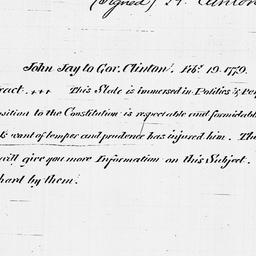 (Signed) H. Clinton
John Jay to Gov. Clinton. Feb. 19. 1779.
ract. This State is immersed in Politics & Per
osition to the Constitution is respectable and formidable
want of temper and prudence has injured him. Th
will give you more Information on this Subject.
hard by them.